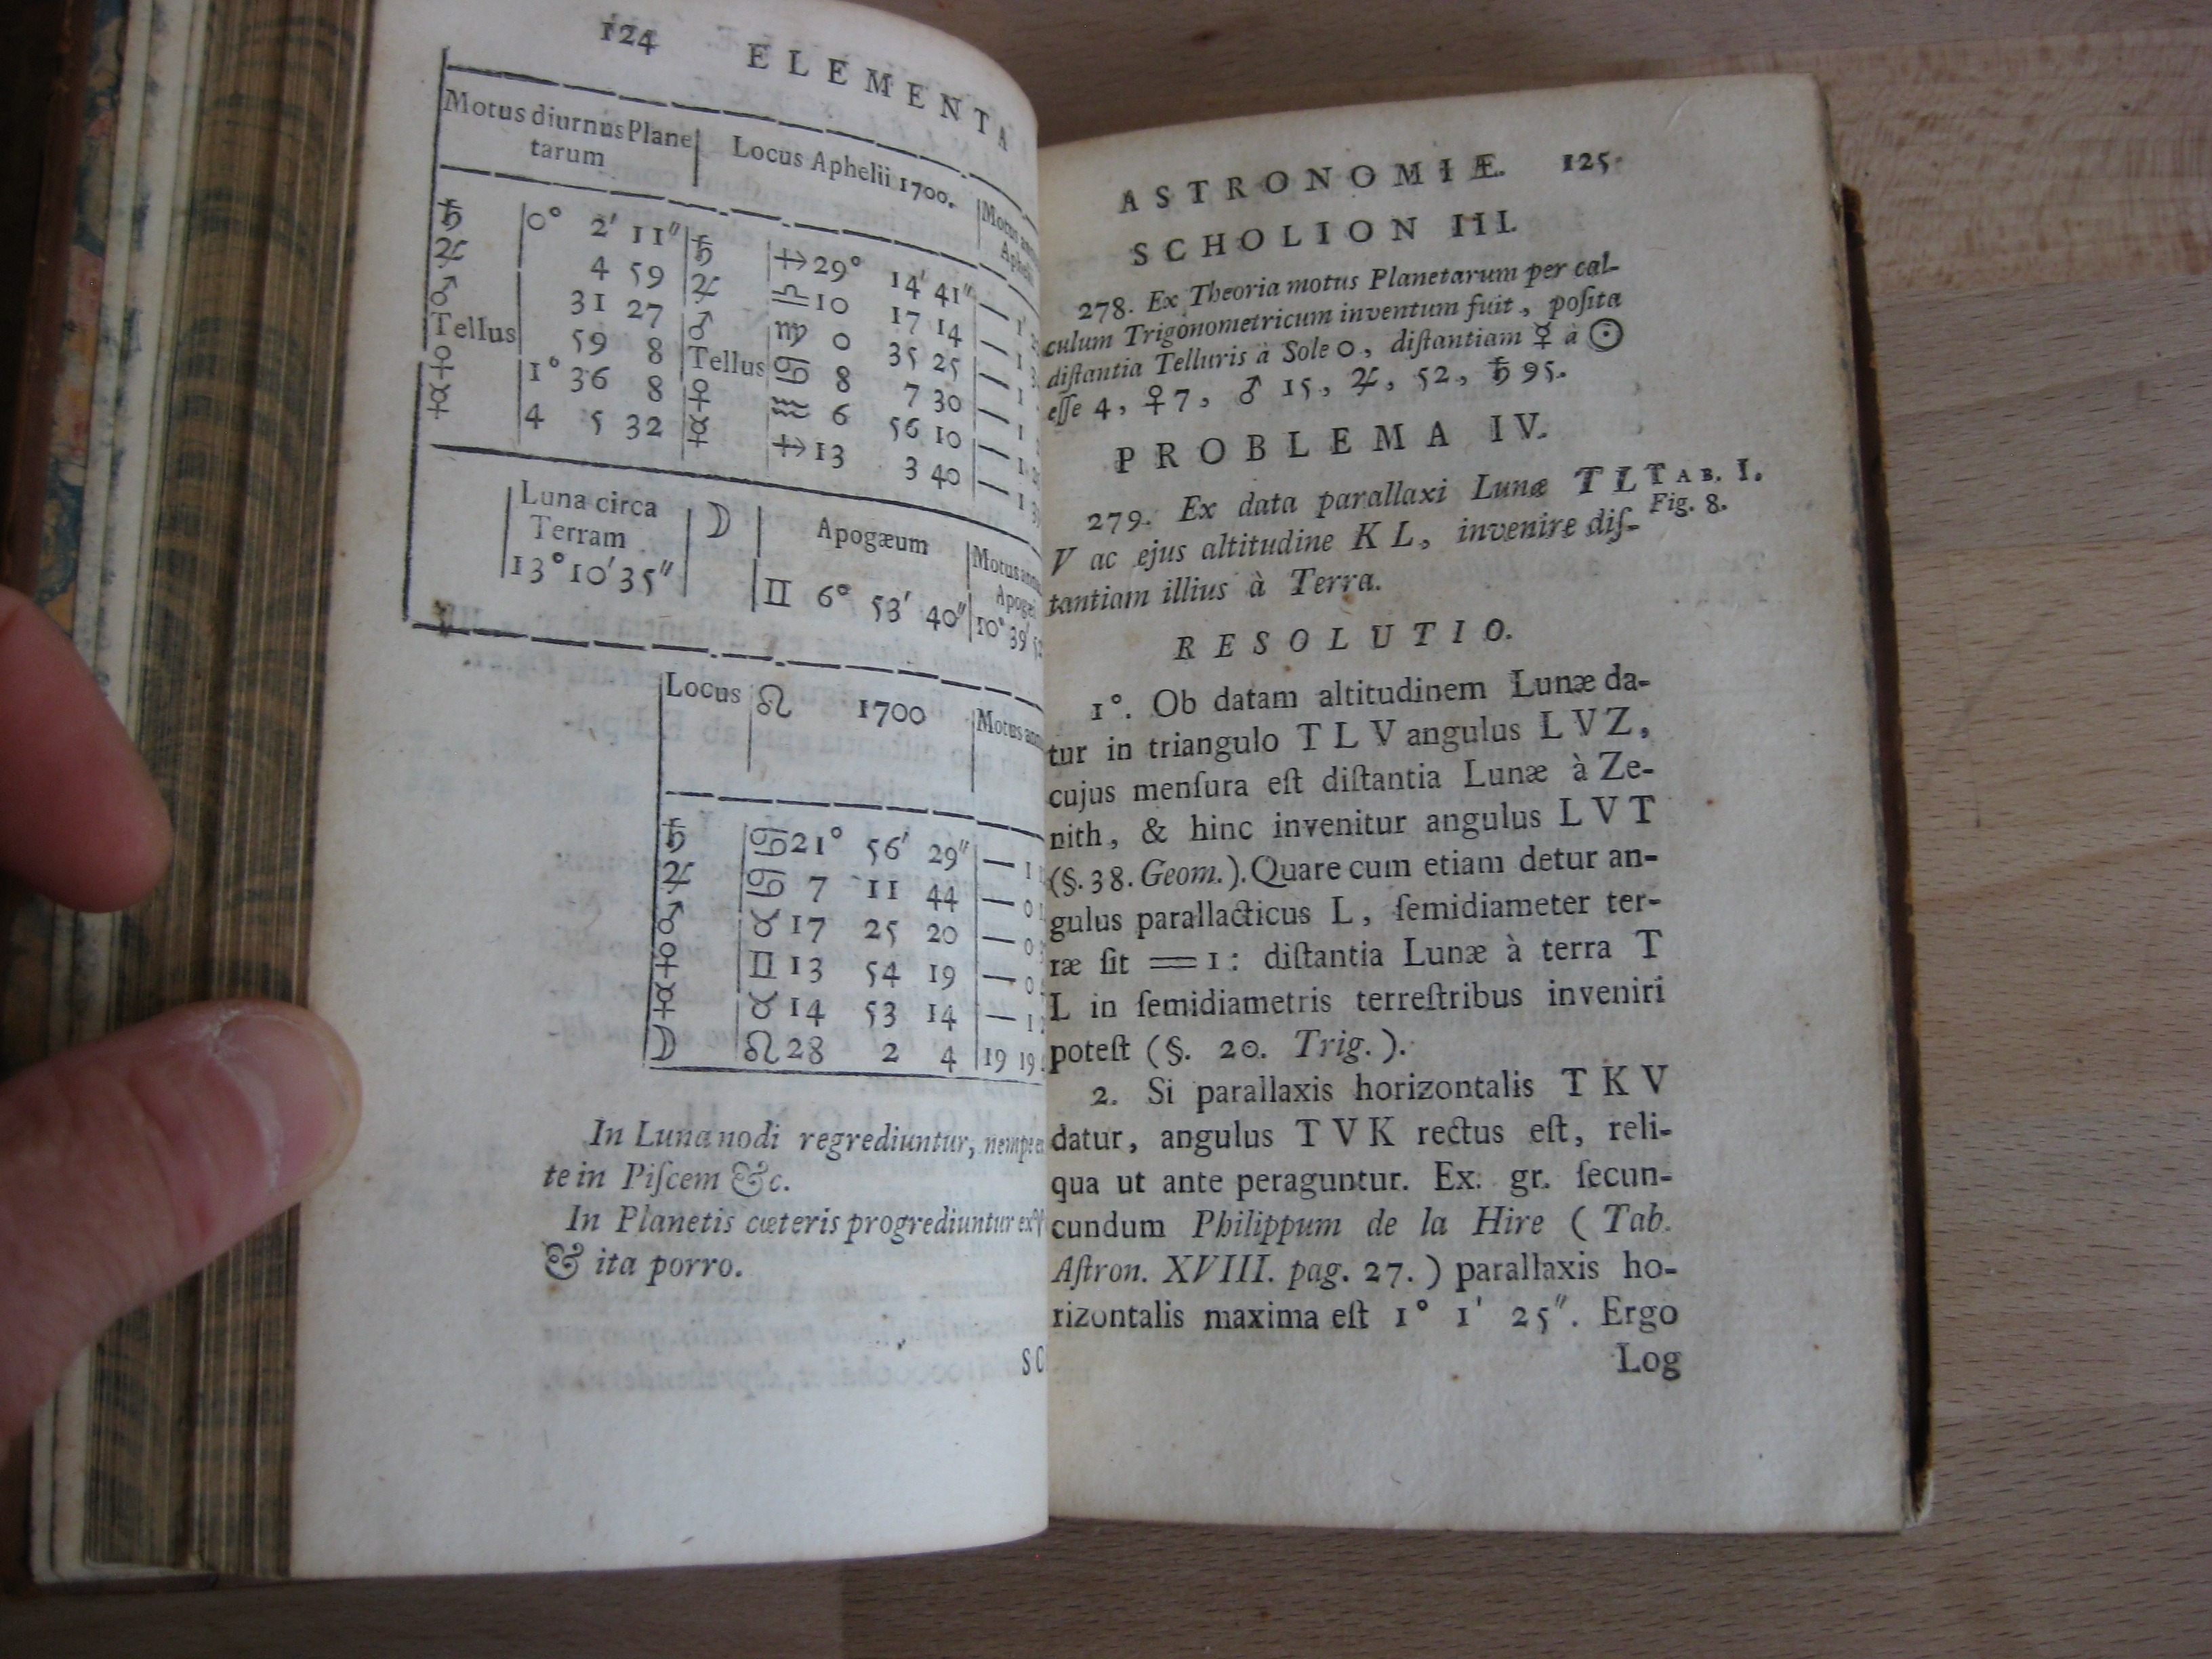 124 ELEMENTA
Motus diurnus Plane
tarum
Locus Aphelii 1700.
Motus
♄ 0° 2′ 11″ ♄ ♐ 29° 14′ 41″ —
♃ 4 59 ♃ ♎ 10 17 14 —
♂ 31 27 ♂ ♍ 0 35 25 —
Tellus 59 8 Tellus ♋ 8 7 30 —
♀ 1° 36 8 ♀ ♒ 6 56 10 —
☿ 4 5 32 ☿ ♐ 13 3 40 —
Luna circa
Terram
13° 10′ 35″
☽ Apogæum
Motus
♊ 6° 53′ 40″ 10° 39′
Locus ☊ 1700 Motus
♄ ♋ 21° 56′ 29″ —
♃ ♋ 7 11 44 —
♂ ♉ 17 25 20 —
♀ ♊ 13 54 19 —
☿ ♉ 14 53 14 —
☽ ♌ 28 2 4 19 19
In Luna nodi regrediuntur, nempe
te in Piſcem &c.
In Planetis cæteris progrediuntur ex
& ita porro.
SC
ASTRONOMIÆ. 125.
SCHOLION III.
278. Ex Theoria motus Planetarum per cal-
culum Trigonometricum inventum fuit, poſita
diſtantia Telluris à Sole 0, diſtantiam ☿ à ☉
eſſe 4, ♀ 7, ♂ 15, ♃, 52, ♄ 95.
PROBLEMA IV.
279. Ex data parallaxi Lunæ T L
V ac ejus altitudine K L, invenire diſ-
tantiam illius à Terra.
TAB. I.
Fig. 8.
RESOLUTIO.
1°. Ob datam altitudinem Lunæ da-
tur in triangulo T L V angulus L V Z,
cujus menſura eſt diſtantia Lunæ à Ze-
nith, & hinc invenitur angulus L V T
(§. 38. Geom.). Quare cum etiam detur an-
gulus parallacticus L, ſemidiameter ter-
ræ ſit = 1: diſtantia Lunæ à terra T
L in ſemidiametris terreſtribus inveniri
poteſt (§. 20. Trig.).
2. Si parallaxis horizontalis T K V
datur, angulus T V K rectus eſt, reli-
qua ut ante peraguntur. Ex. gr. ſecun-
cundum Philippum de la Hire (Tab.
Aſtron. XVIII. pag. 27.) parallaxis ho-
rizontalis maxima eſt 1° 1′ 25″. Ergo
Log